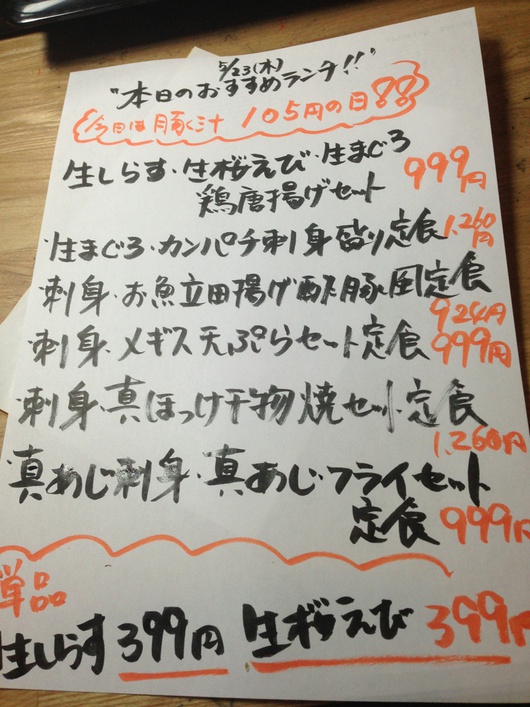 5/23(木)
"本日のおすすめランチ!!"
今日は豚汁 105円の日!!
生しらす・生桜えび・生まぐろ
鶏唐揚げセット 999円
生まぐろ・カンパチ刺身盛り定食 1,260円
刺身・お魚立田揚げ酢豚風定食
924円
刺身・メギス天ぷらセット定食 999円
刺身・真ほっけ干物焼セット定食
1,260円
真あじ刺身・真あじ・フライセット
定食 999円
単品
生しらす 399円 生桜えび 399円